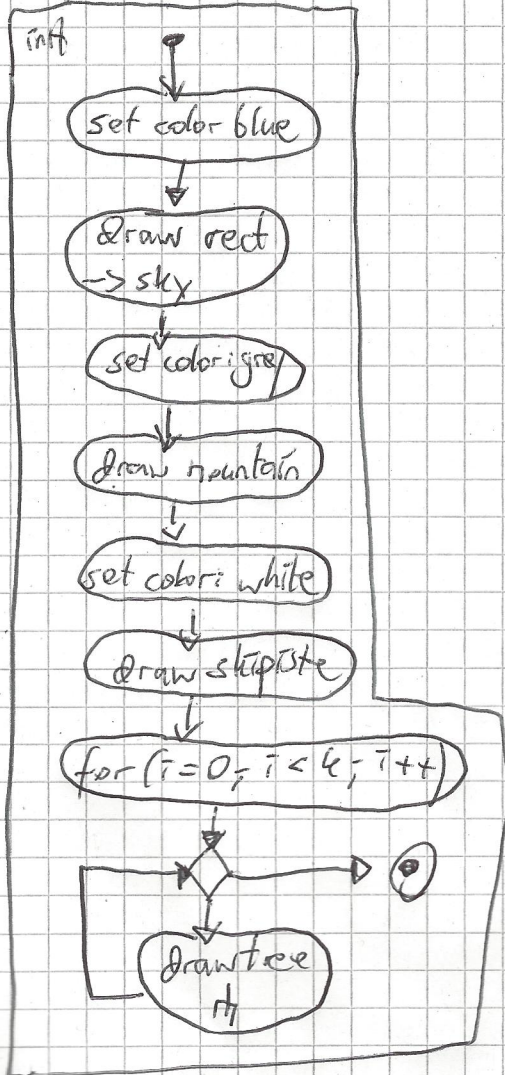 init
set color blue
draw rect
-> sky
set color: grey
draw mountain
set color: white
draw skipiste
for (i=0; i < 4; i++)
draw tree